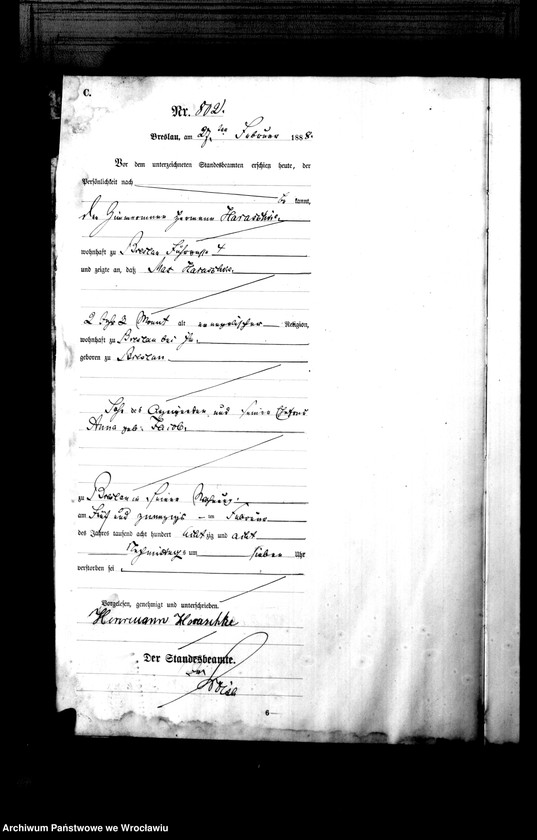 C.
Nr. 802.
Breslau, am 27 ten Februar 1888.
Vor dem unterzeichneten Standesbeamten erschien heute, der
Persönlichkeit nach
be kannt,
der Zimmermann Hermann Haraschke
wohnhaft zu Breslau 4
und zeigte an, daß Max Haraschke
2 Jahr 2 Monat alt evangelischer Religion,
wohnhaft zu Breslau bei ihm
geboren zu Breslau
Sohn des Anzeigenden und seiner Ehefrau
Anna geb. Jacob.
zu Breslau in seiner Wohnung
am fünf und zwanzigs ten Februar
des Jahres tausend acht hundert achtzig und acht
Nachmittags um sieben Uhr
verstorben sei
Vorgelesen, genehmigt und unterschrieben.
Herrmann Horaschke
Der Standesbeamte.
6
Archiwum Państwowe we Wrocławiu